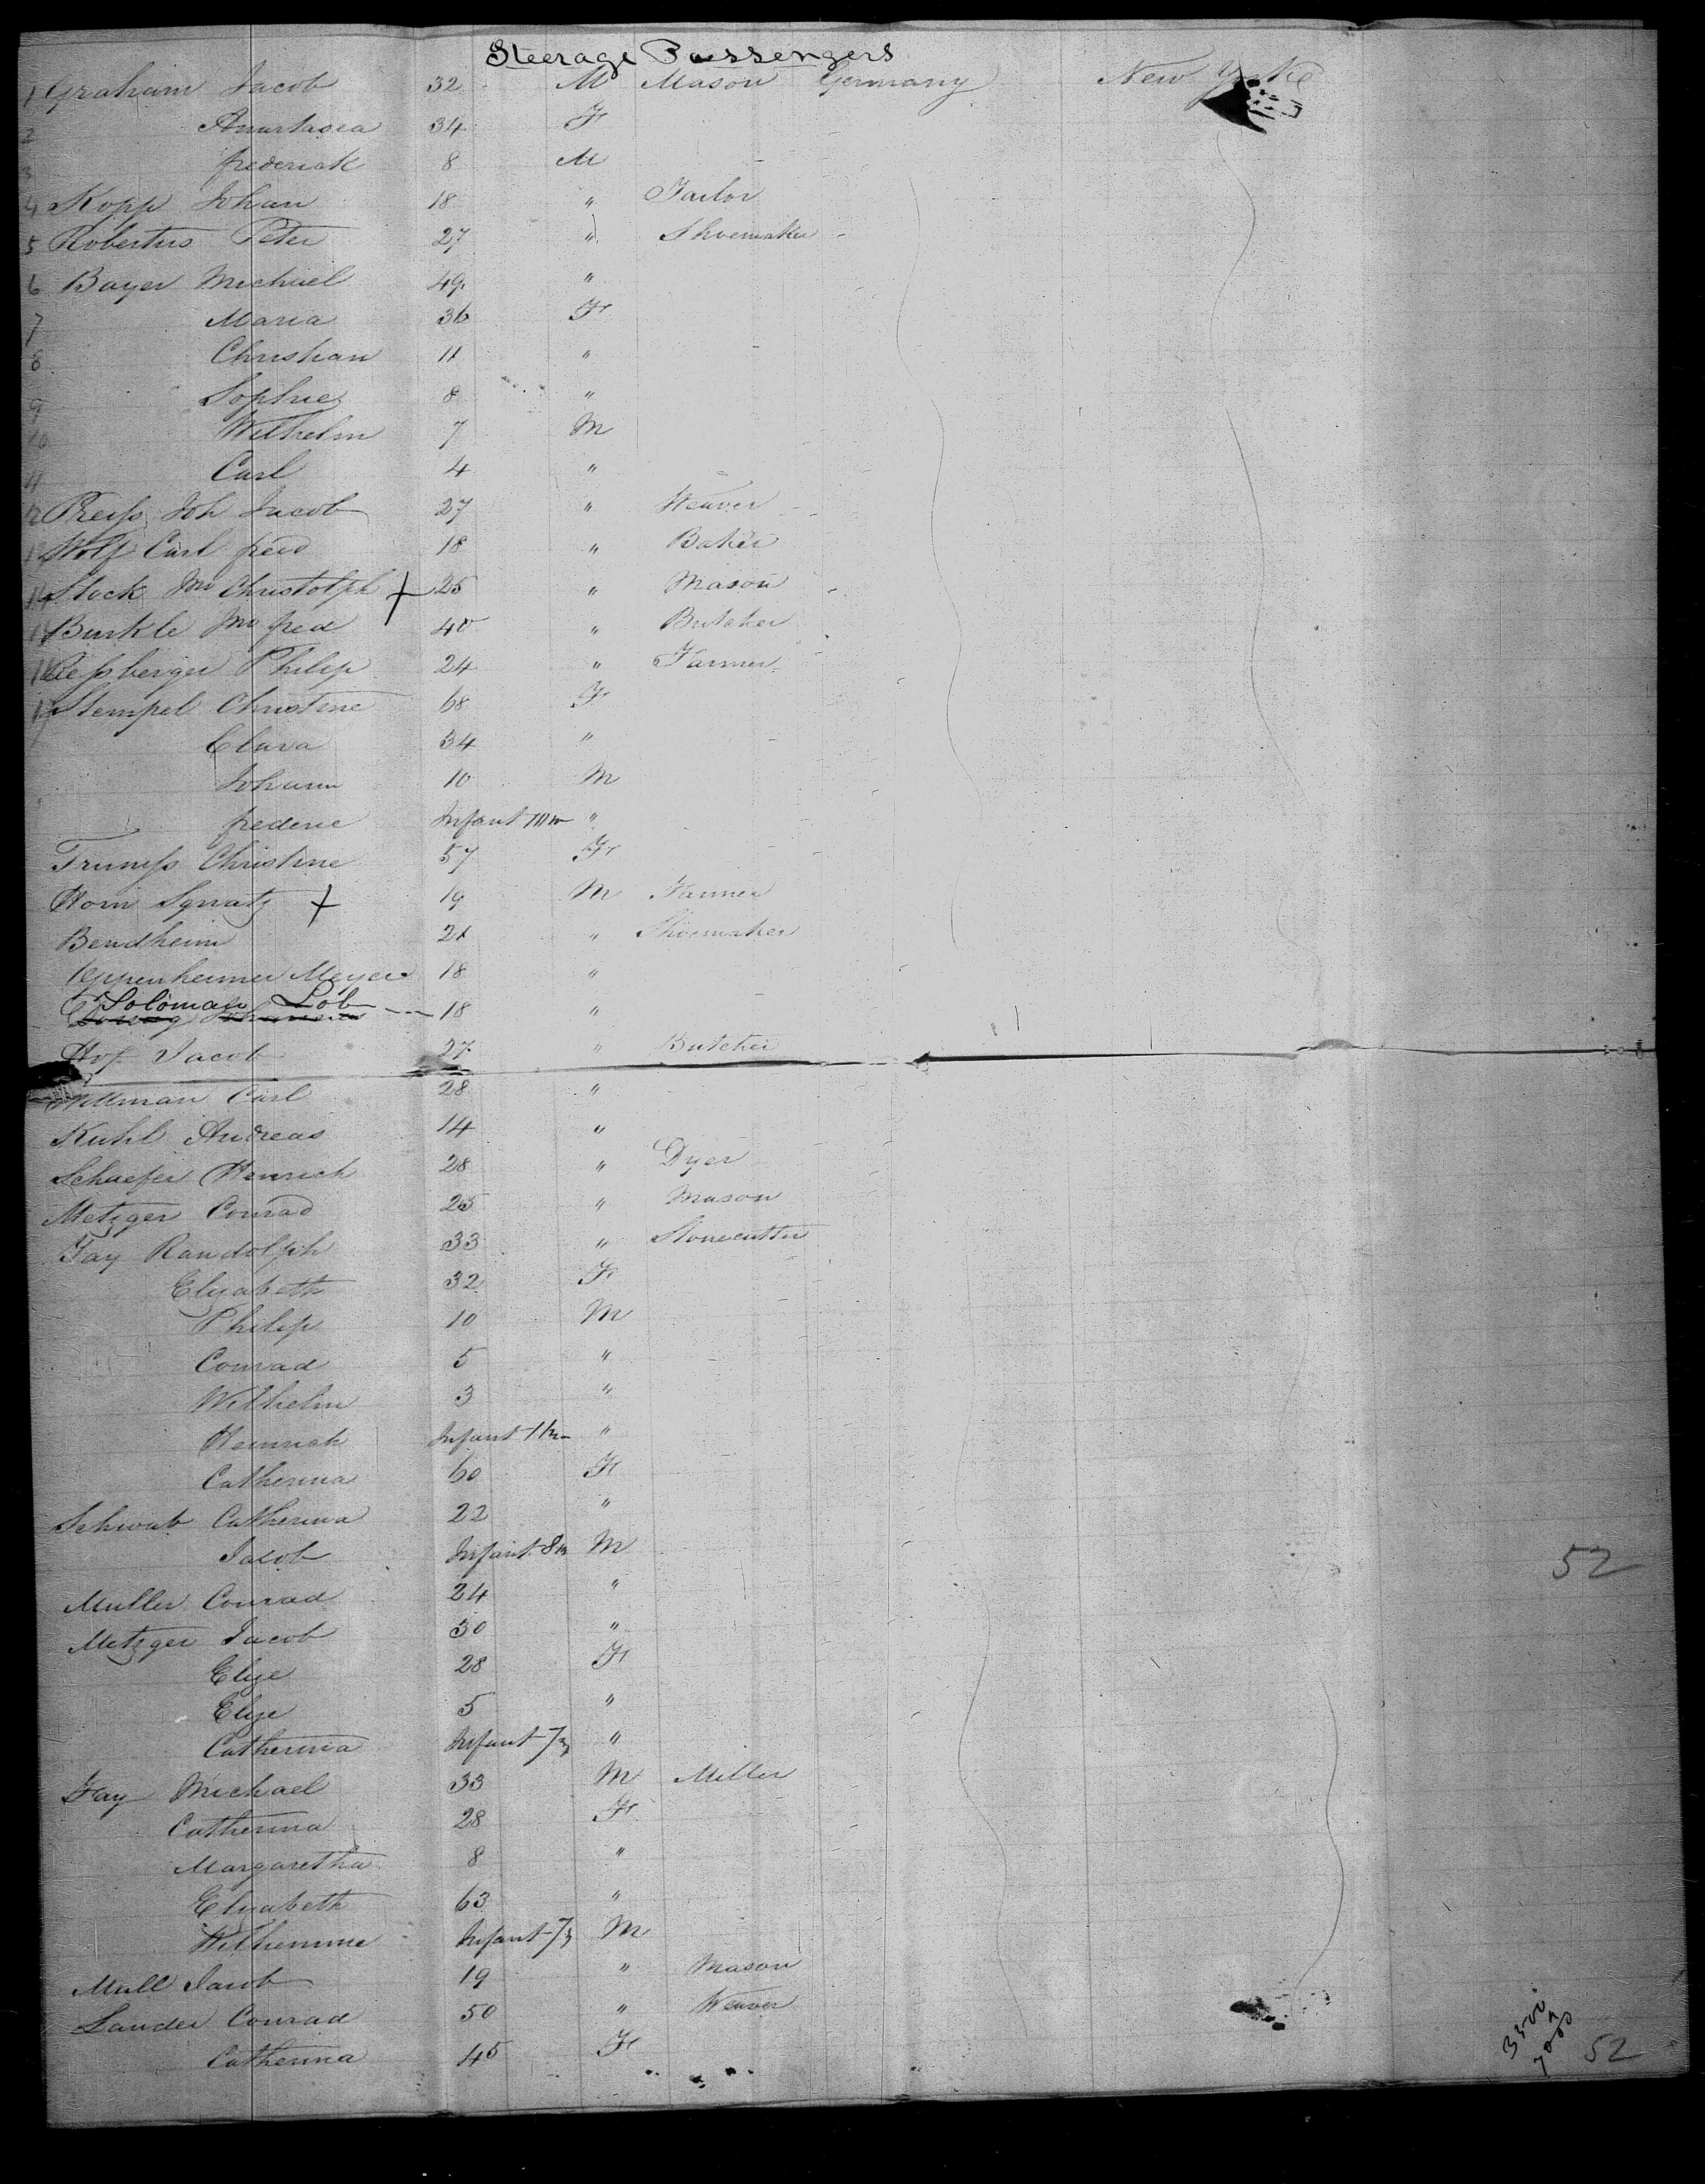 Steerage Passengers
1 Graham Jacob 32 M Mason Germany New York
2 Anastasia 34 F
3 frederick 8 M
4 Kopp Johan 18 " Tailor
5 Robertus Peter 27 " Shoemaker
6 Bayer Michael 49 "
7 Maria 36 F
8 Christian 11 "
9 Sophie 8 "
10 Wilhelm 7 M
11 Carl 4 "
12 Preiss Joh Jacob 27 " Weaver
13 Wolf Carl fred 18 " Baker
14 Stock Jno Christolph + 25 " Mason
15 Burkle Jno fred 40 " Butcher
16 Philip 24 " Farmer
17 Stempel Christine 68 F
Clara 34 "
Johann 10 M
frederic Infant "
Christine 57 F
Horn Ignatz + 19 M Farmer
Bendheim 21 " Shoemaker
Oppenheimer Meyer 18 "
Soloman Lob 18 "
Hof Jacob 27 " Butcher
Carl 28 "
Kuhl Andreas 14 "
Schaefer Henrich 28 " Dyer
Metzger Conrad 25 " Mason
Fay Randolph 33 " Stonecutter
Elisabeth 32 F
Philip 10 M
Conrad 5 "
Wilhelm 3 "
Heinrich Infant "
Catherina 60 F
Schwab Catherina 22 "
Jacob Infant 8m M
52
Muller Conrad 24 "
Metzger Jacob 30 "
Elise 28 F
Elise 5 "
Catherina Infant 7m "
Fay Michael 33 M Miller
Catherina 28 F
Margaretha 8 "
Elisabeth 63 "
Wilhemine Infant 7m M
Mull Jacob 19 " Mason
Lander Conrad 50 " Weaver
Catherina 45 F
52